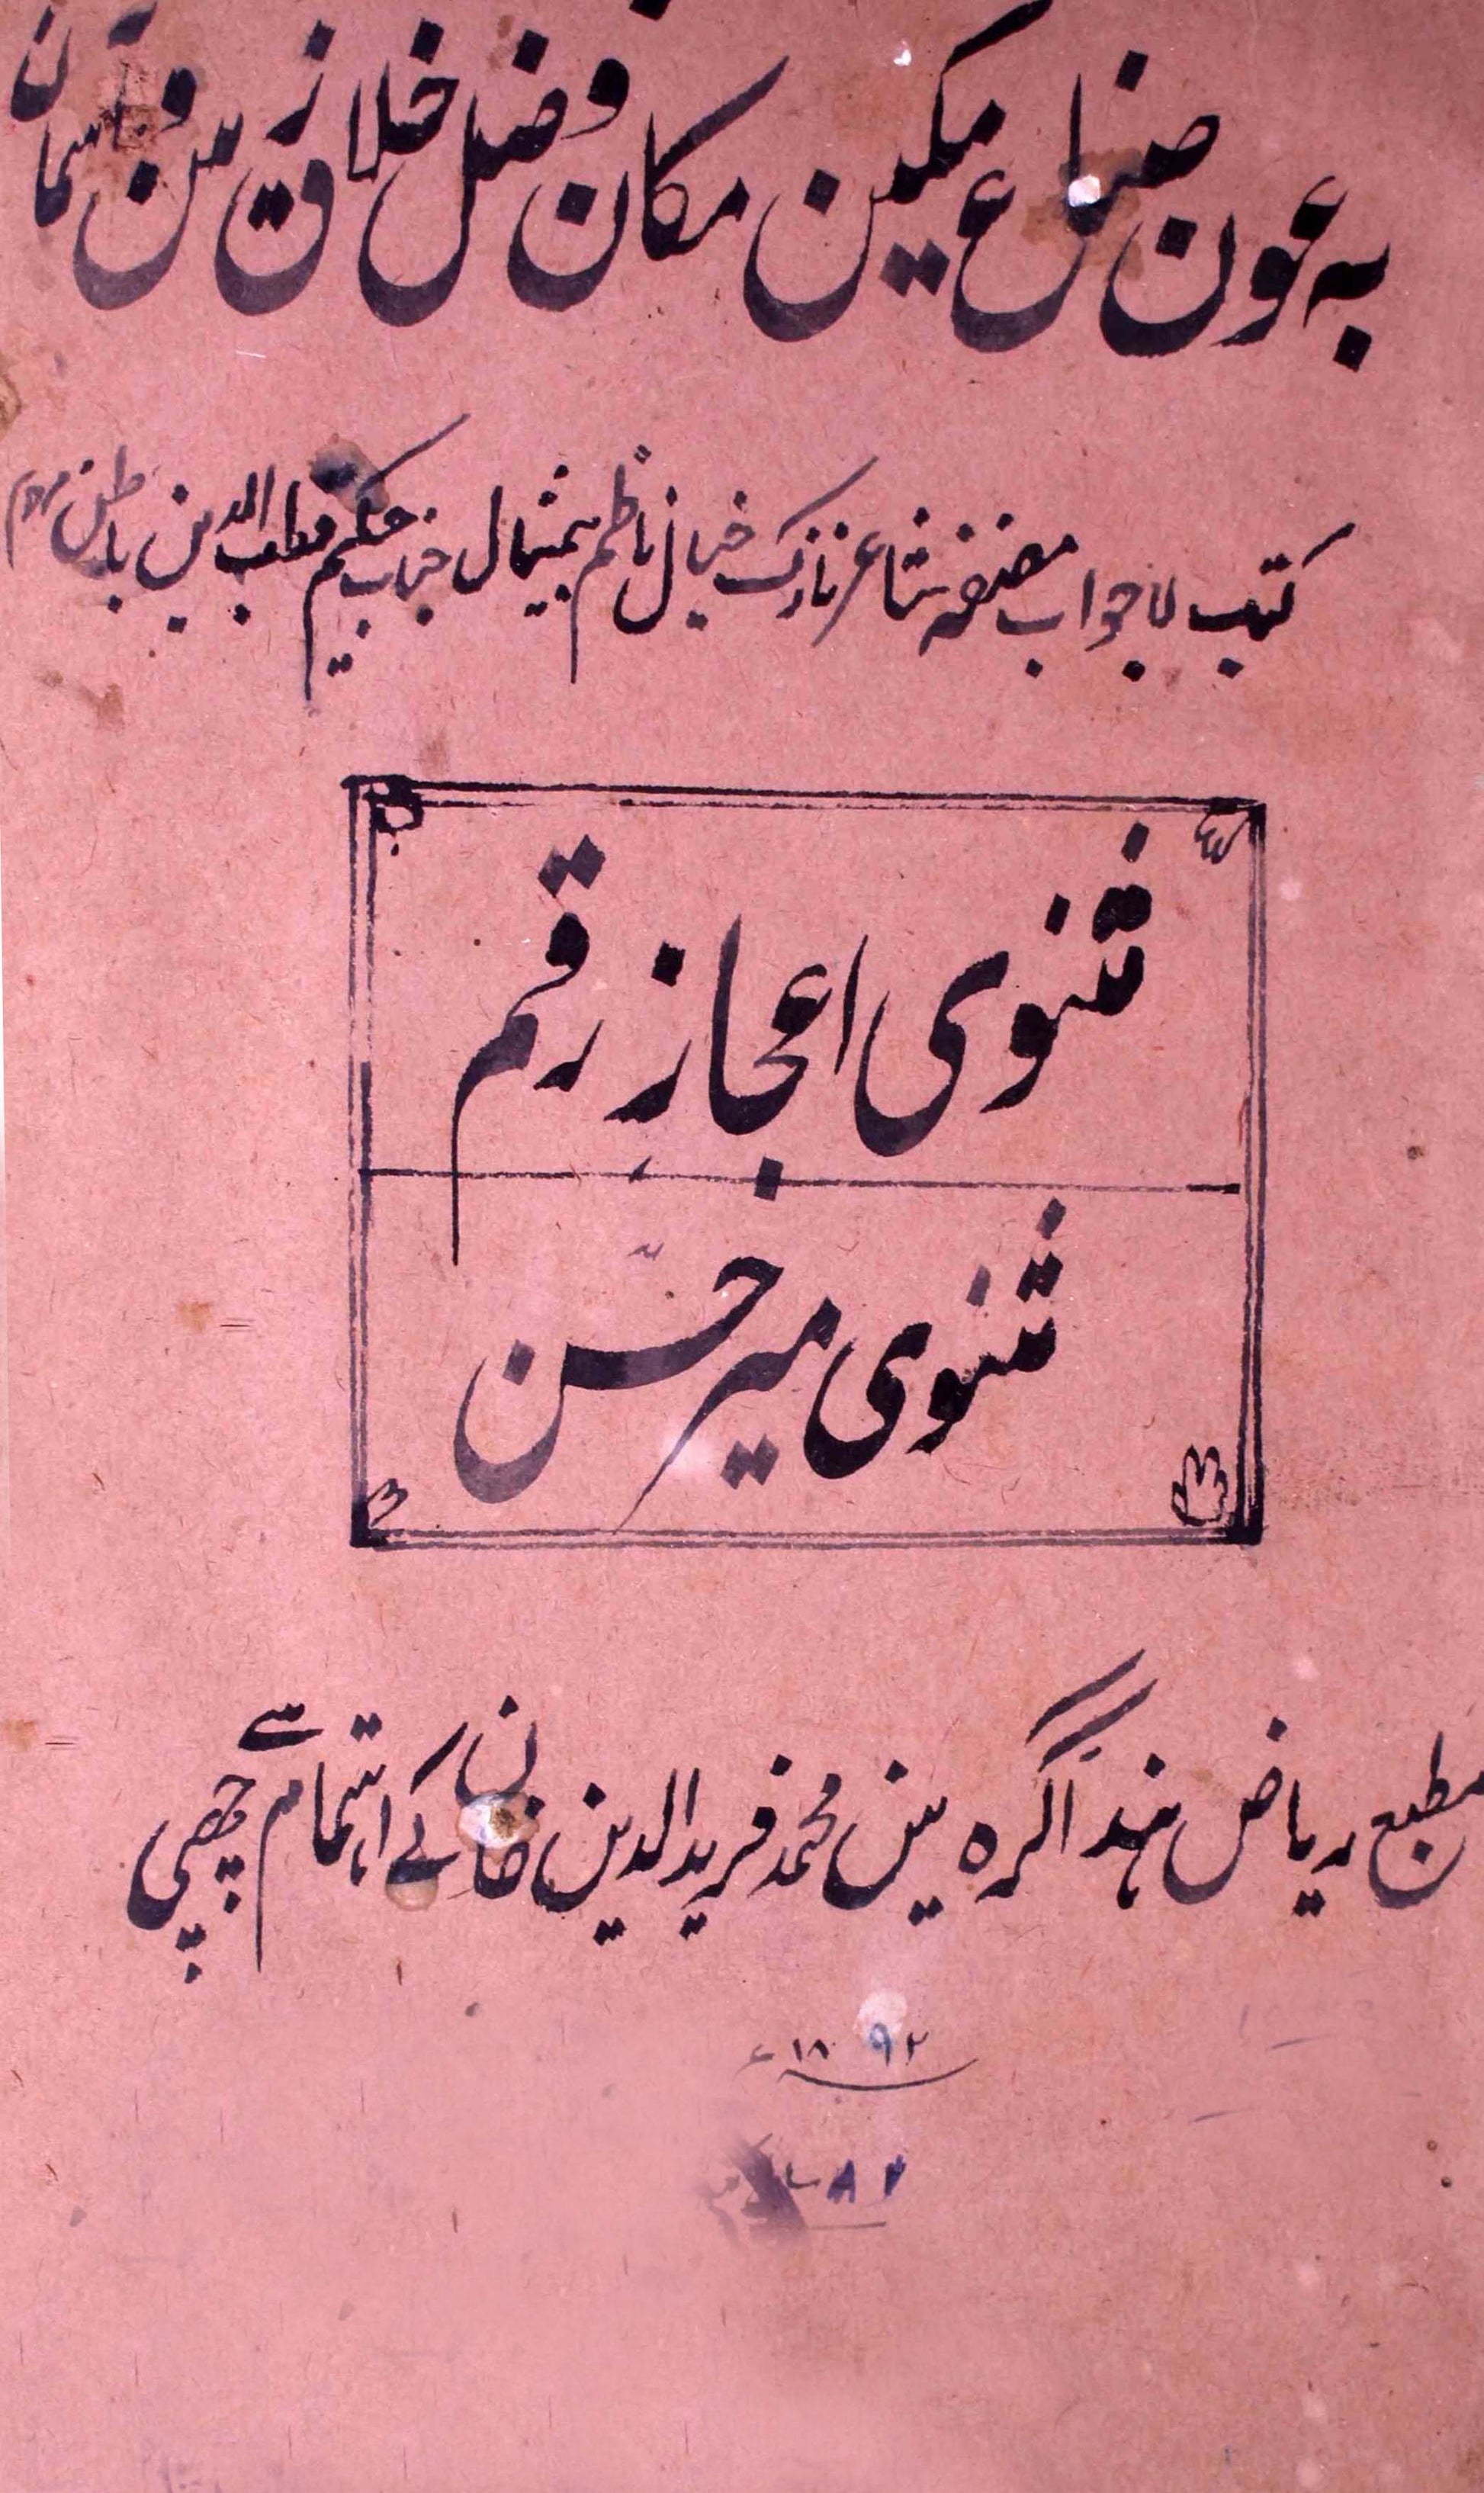 به عون صناع مکین مکان و فضل خلاق زمین و آسمان
کتب لاجواب مصنفہ شاعر نازک خیال ناظم بیمثال جناب حکیم قطب الدین باطن مرحوم
مثنوی اعجاز رقم
مثنوی میر حسن
مطبع ریاض ہند آگرہ مین محمد فرید الدین خان کے اہتمام سے چھپی
۱۸۹۲ء